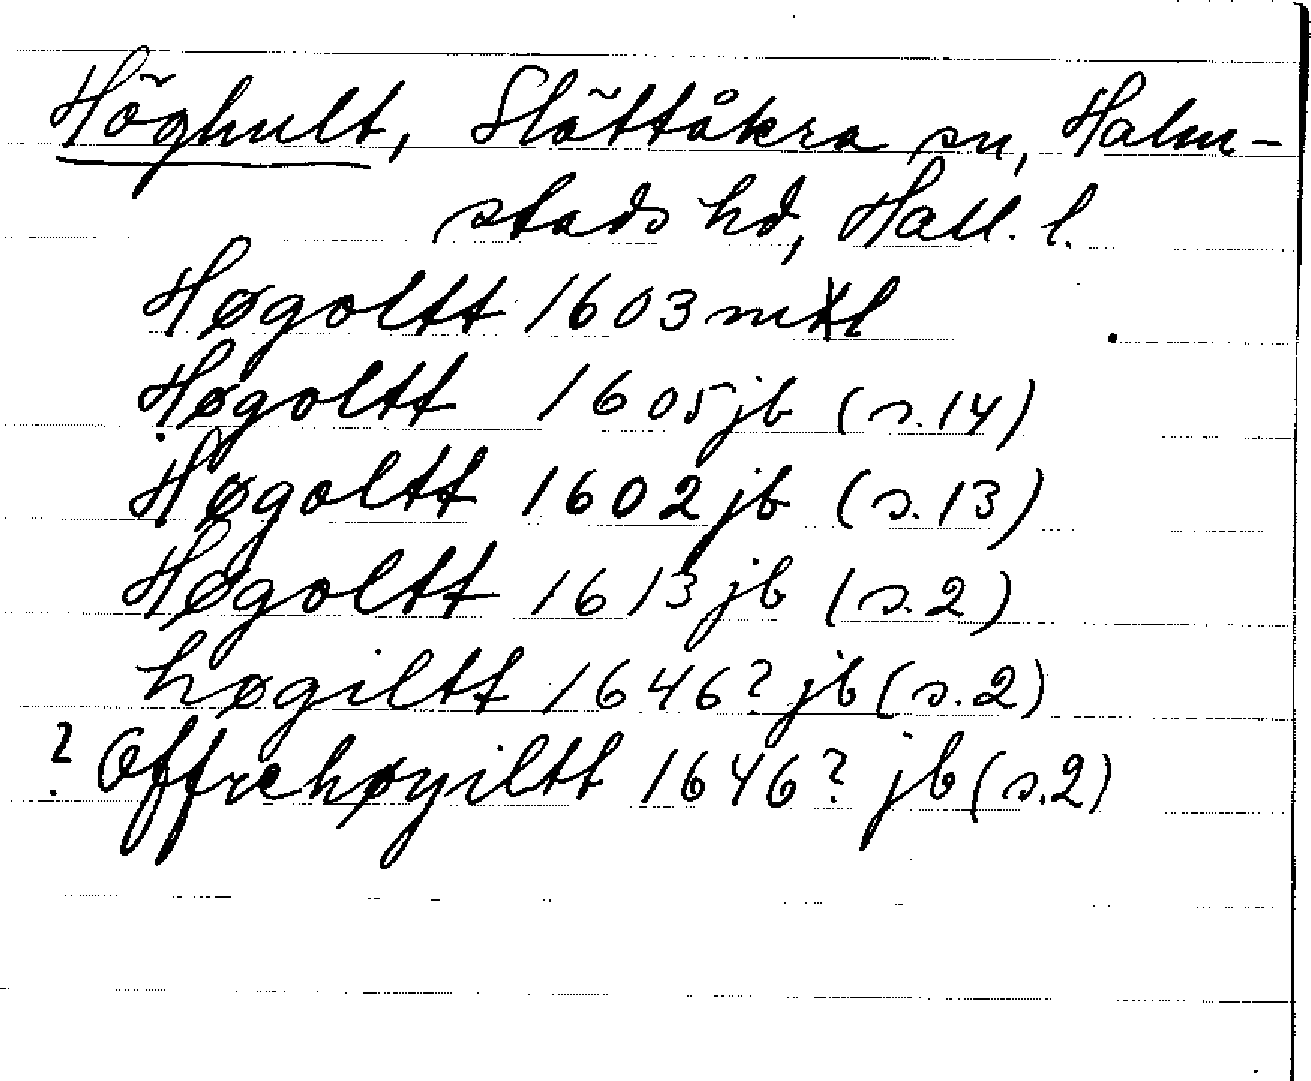 Höghult, Slättåkra sn, Halm-
stads hd, Hall. l.
Høgoltt 1603 mtl
Høgoltt 1605 jb (s. 14)
Høgoltt 1602 jb (s. 13)
Høgoltt 1613 jb (s. 2)
høgiltt 1646? jb (s. 2)
? Offrehøyiltt 1646? jb (s. 2)